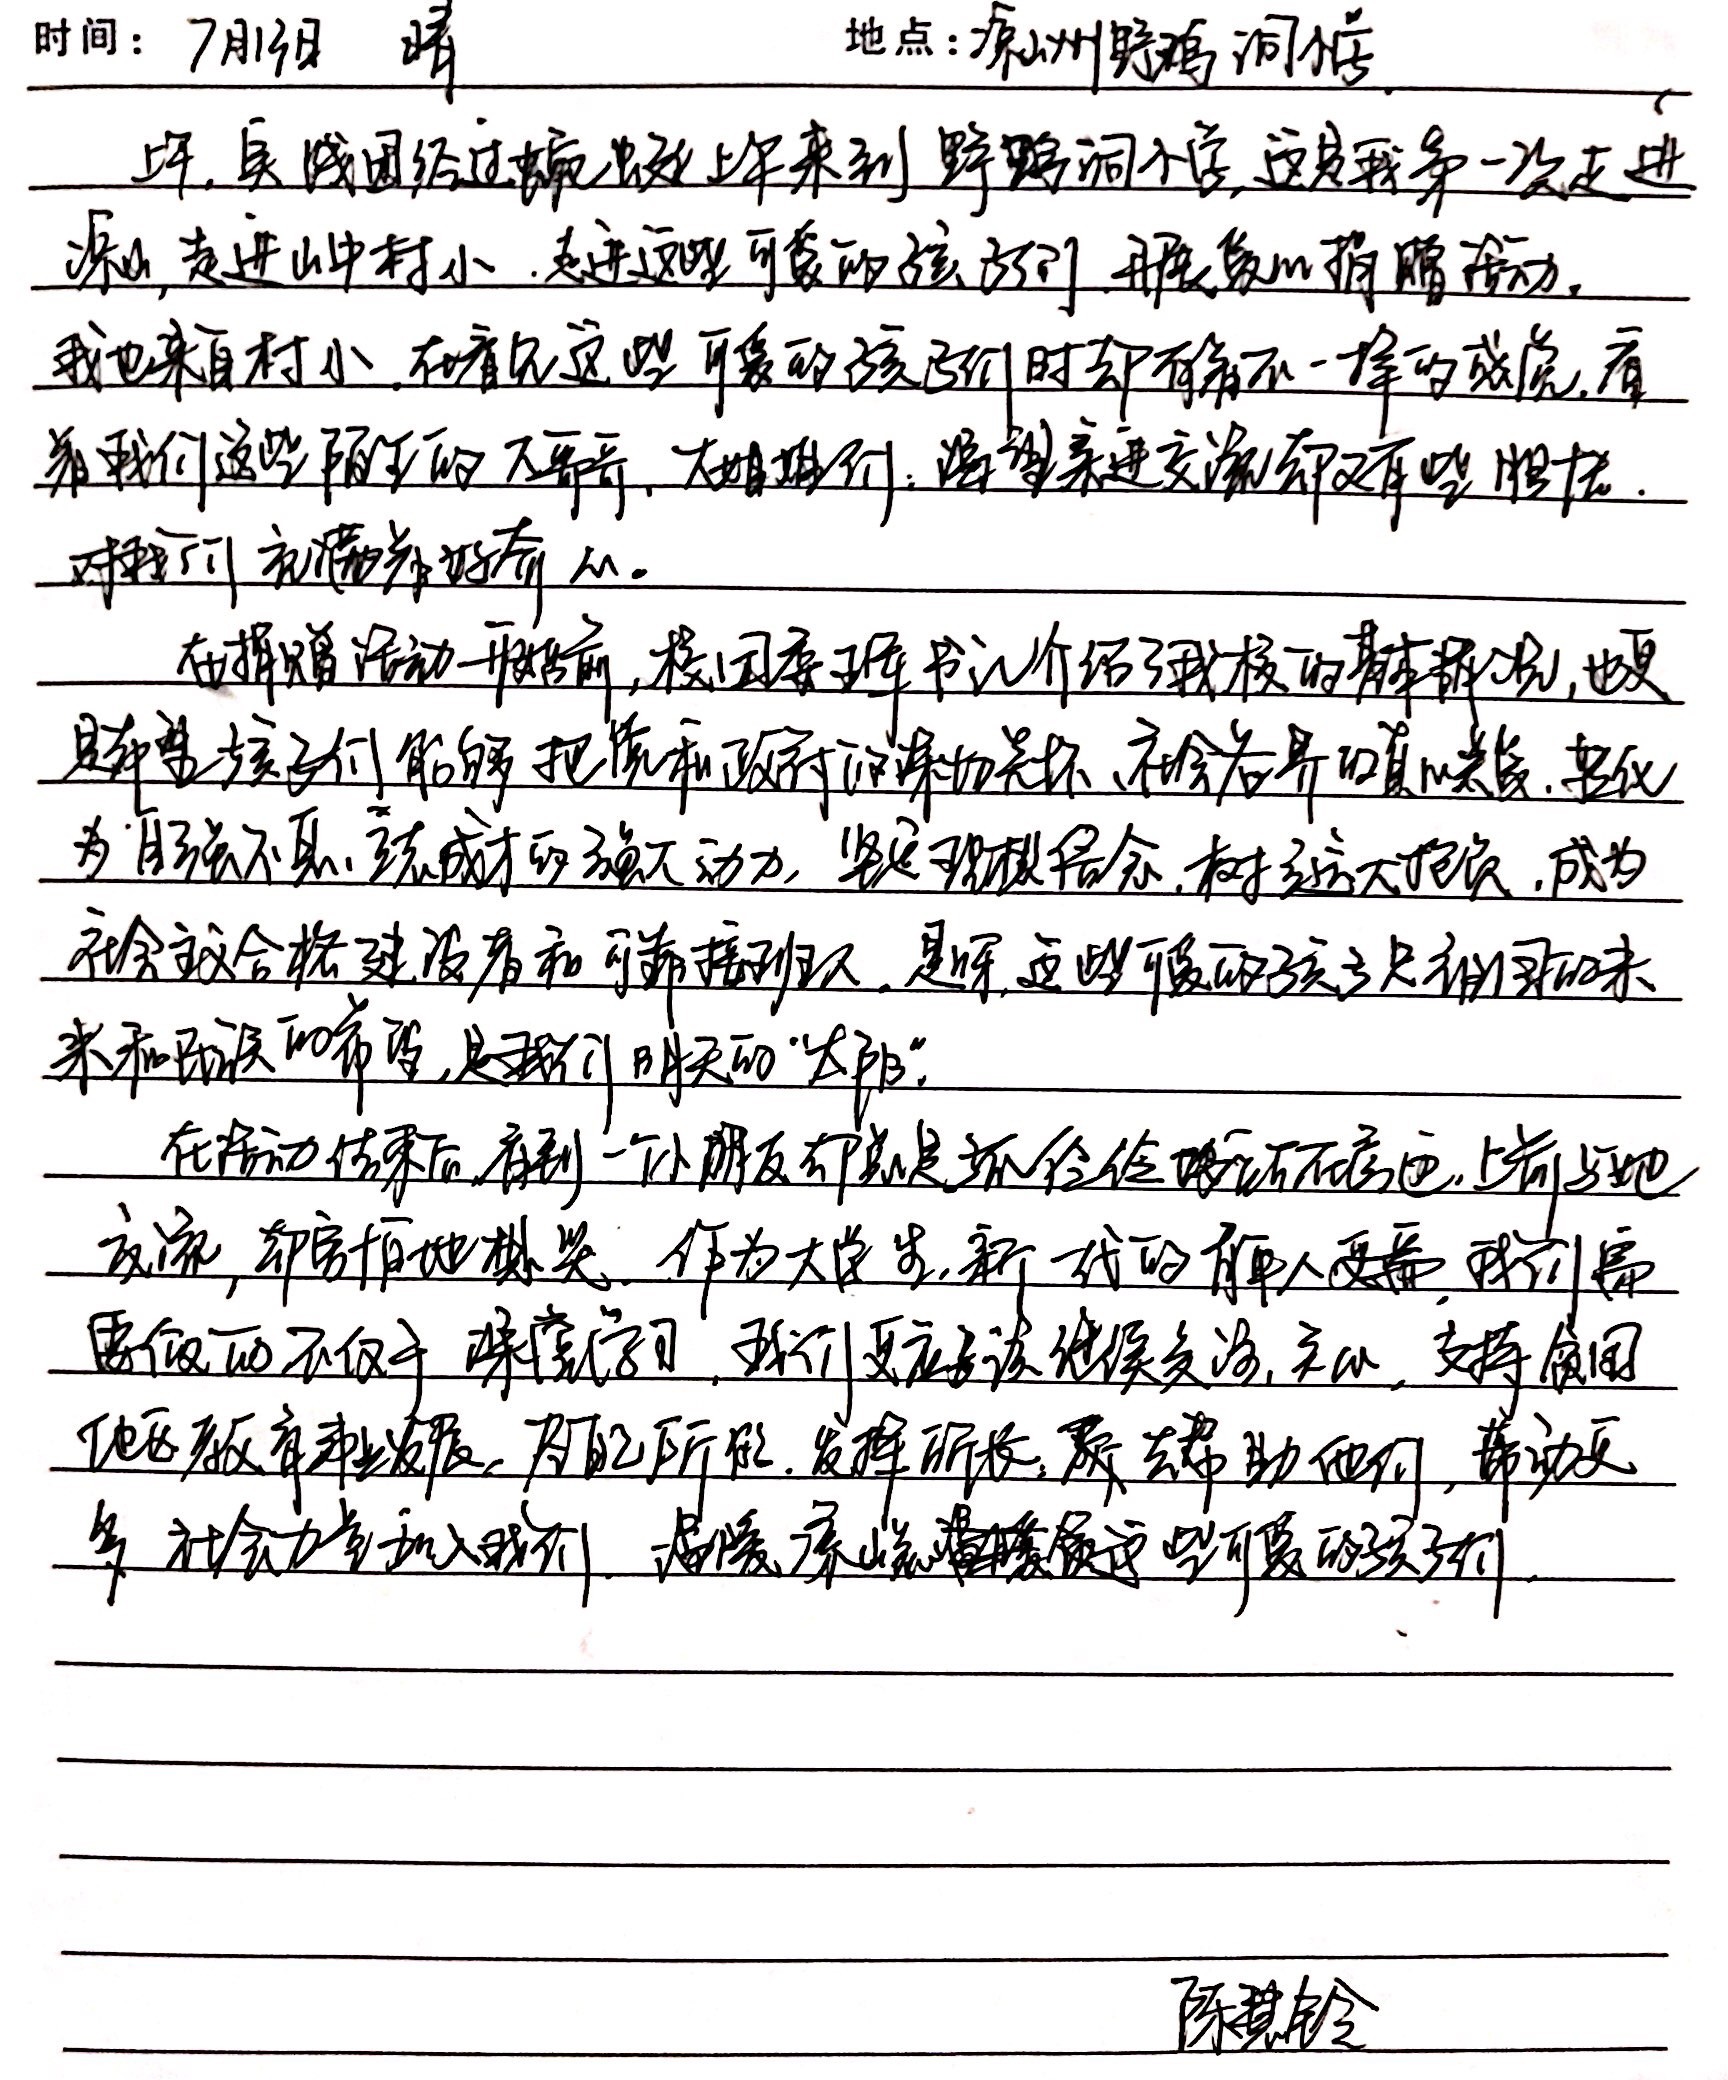 时间：7月13日 晴 地点：凉山州野鸡洞小学
上午，实践团经过蜿蜒山路来到野鸡洞小学，这是我第一次走进
凉山，走进山中村小，走进这些可爱的孩子们，开展爱心捐赠活动。
我也来自村小，在看见这些可爱的孩子们时却有着不一样的感觉，看
着我们这些陌生的大哥哥、大姐姐们，渴望亲近交流却又有些胆怯，
对我们充满着好奇心。
在捐赠活动开始前，校团委王萍书记介绍了我校的基本情况，也更
是希望孩子们能够把党和政府的深切关怀、社会各界的真心关爱，转化
为自强不息、立志成才的强大动力，坚定理想信念，树立远大抱负，成为
社会主义合格建设者和可靠接班人。是呀，这些可爱的孩子是祖国的未
来和民族的希望，是我们明天的“太阳”。
在活动结束后，看到一个小朋友却总是孤伶伶地站在旁边，上前与她
交流，却害怕地想哭。作为大学生，新一代的青年人更需，我们需
要做的不仅于课堂学习，我们更应该继续关注、关心，支持贫困
地区教育事业发展，尽自己所能，发挥所长，去帮助他们，带动更
多社会力量加入我们，温暖凉山，温暖这些可爱的孩子们。